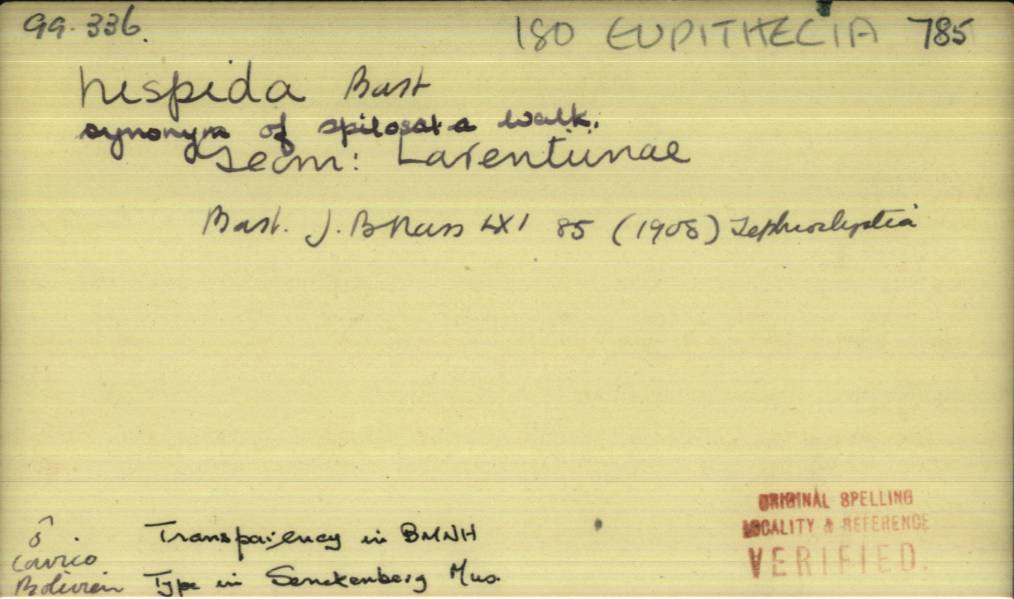 99.336.
180 EUPITHECIA 785
hispida Bast
synonym of spilosata Walk.
Geom: Larentiinae
Bast. J. B Nass LXI 85 (1908) Tephroclystia
♂
Cavico
Bolivien
Transpaiency in BMNH
Type in Senckenberg Mus.
ORIGINAL SPELLING
LOCALITY & REFERENCE
VERIFIED.